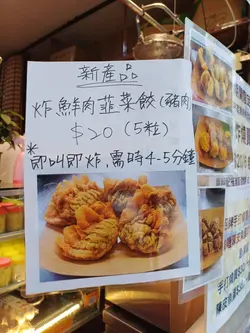 新產品
炸鮮肉韮菜餃(豬肉)
$20(5粒)
*
即叫即炸,需時4-5分鐘